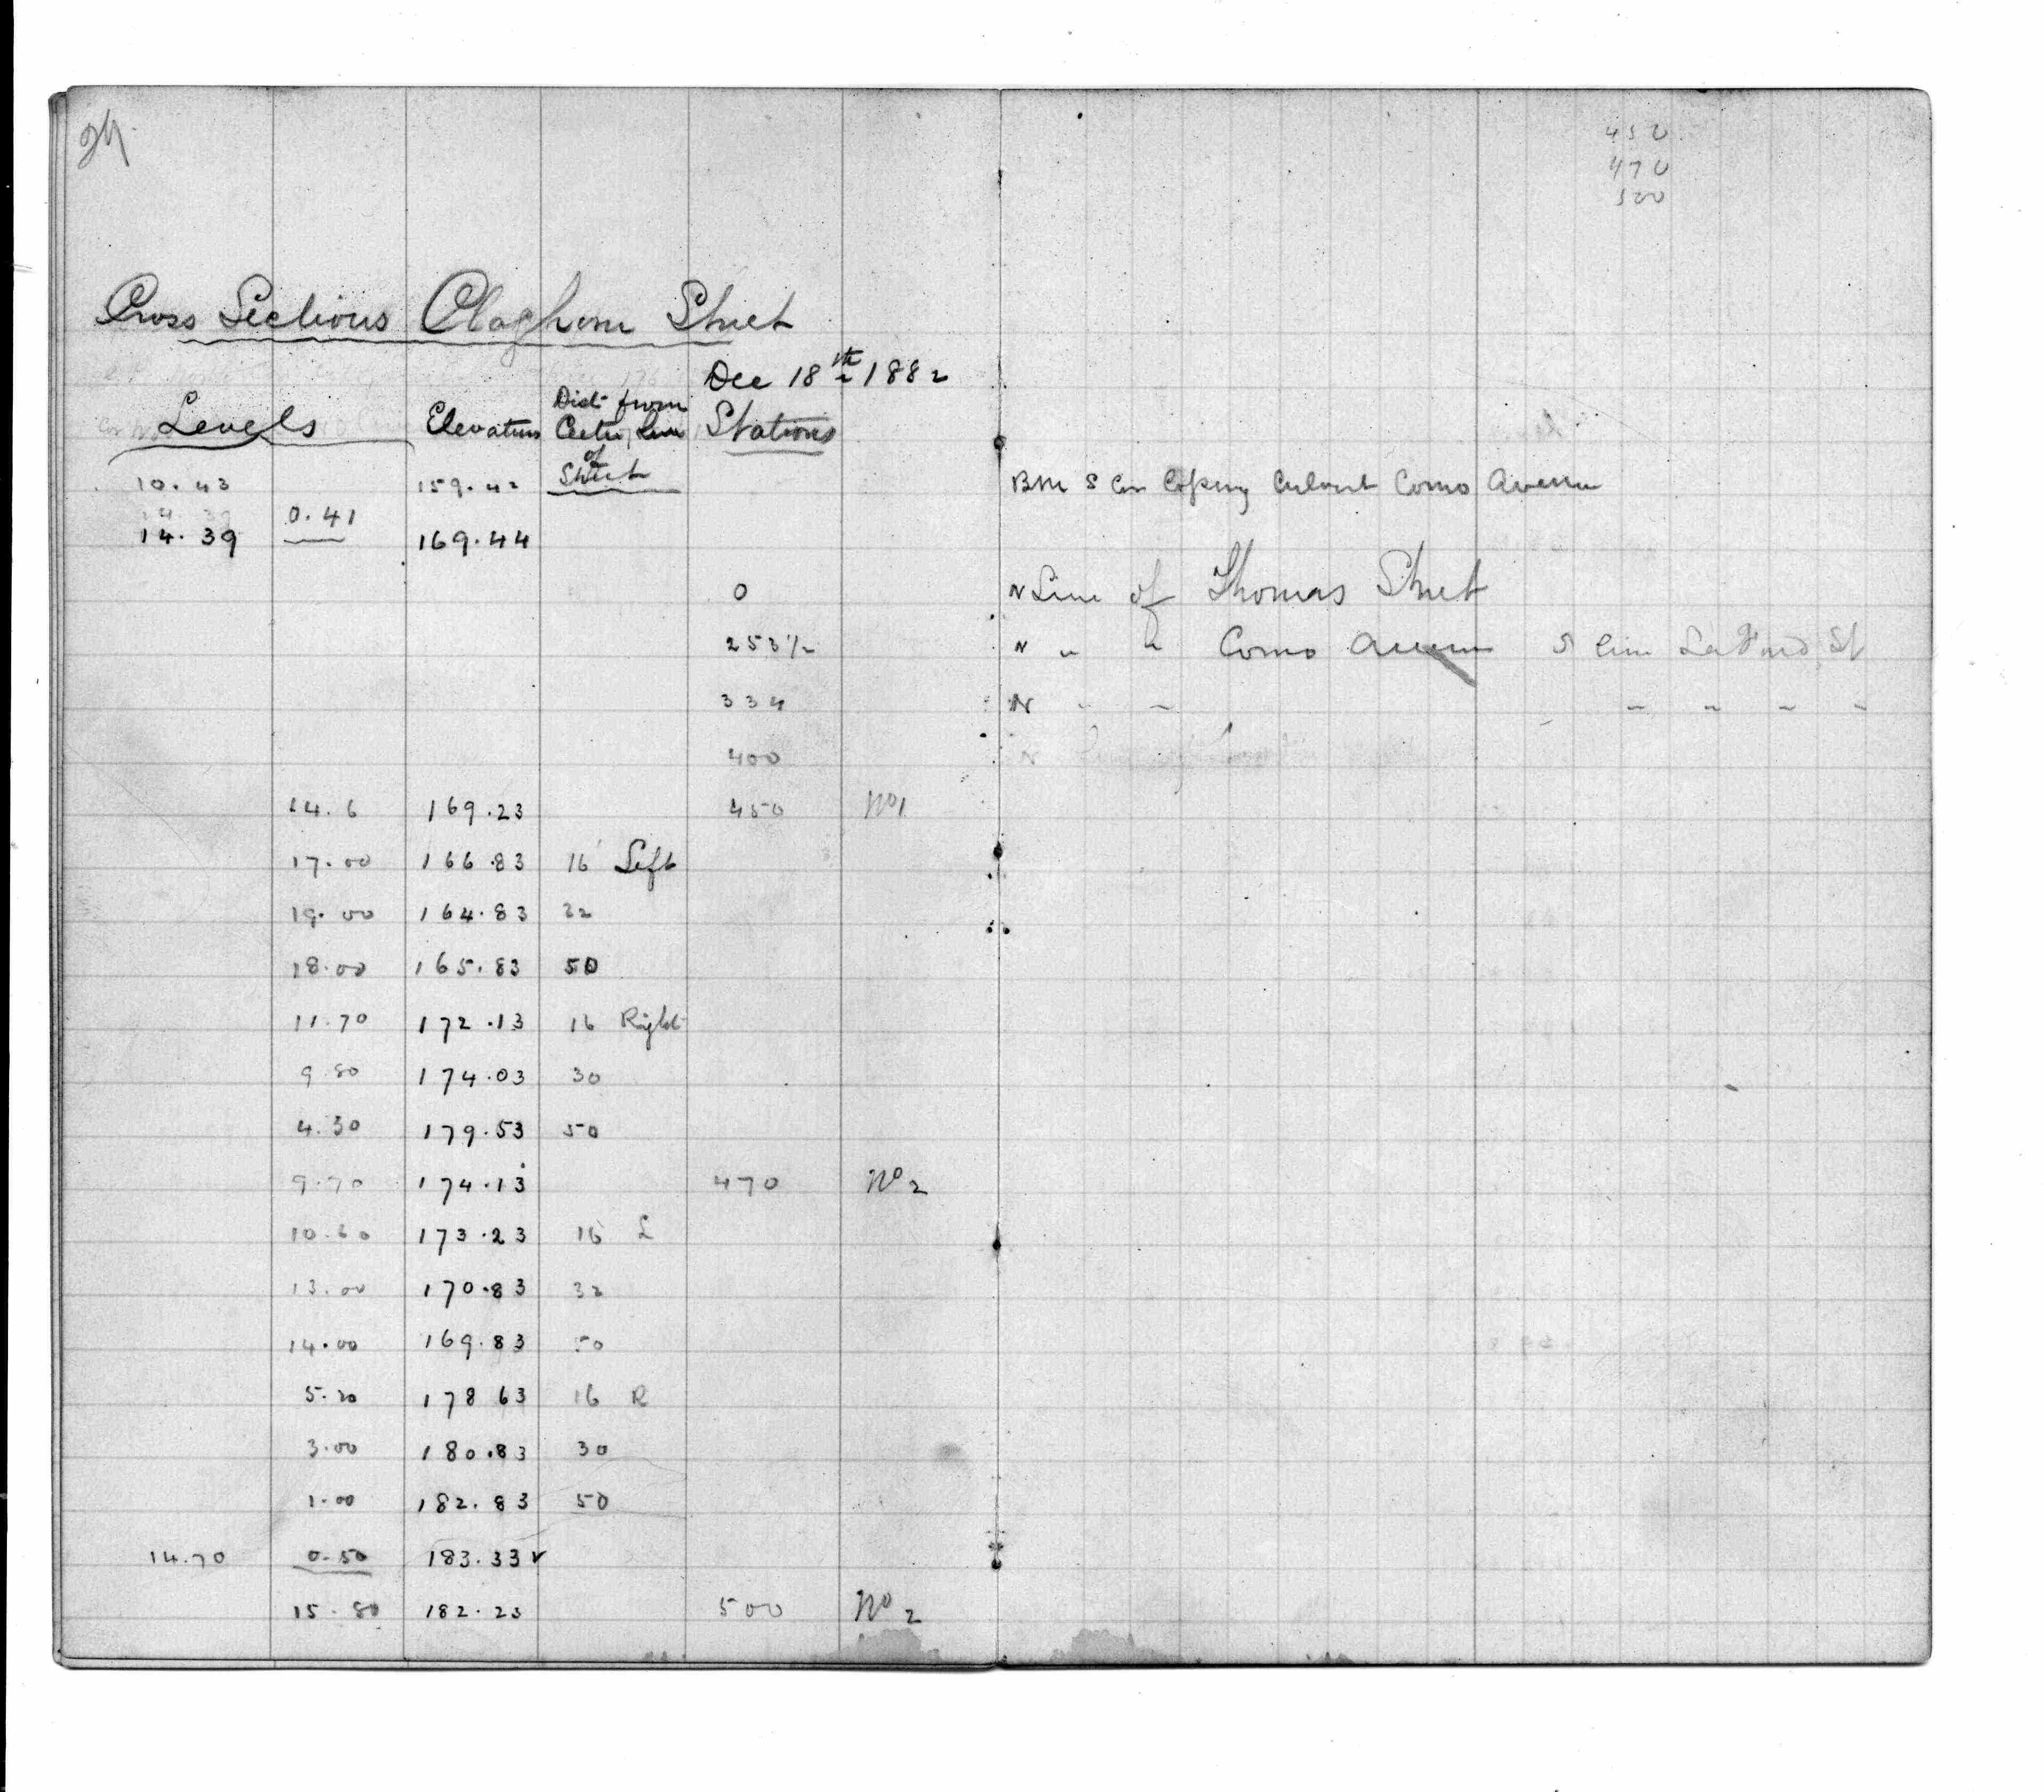 24
450
470
500
Cross Sections Claghorn Street
Dec 18th 1882
Levels Elevations Dist from Center Line of Street Stations
10.43 159.42 BM S Cor Coping Culvert Como Avenue
0.41
14.39 169.44
0 N Line of Thomas Street
253 1/2 N " " Como Avenue S line Lafond St
334 N " " " " " "
400 N
14.6 169.23 450 No 1
17.00 166.83 16 Left
19.00 164.83 32
18.00 165.83 50
11.70 172.13 16 Right
9.80 174.03 30
4.30 179.53 50
9.70 174.13 470 No 2
10.60 173.23 16 L
13.00 170.83 32
14.00 169.83 50
5.20 178 63 16 R
3.00 180.83 30
1.00 182.83 50
14.70 0.50 183.33 v
15.80 182.23 500 No 2